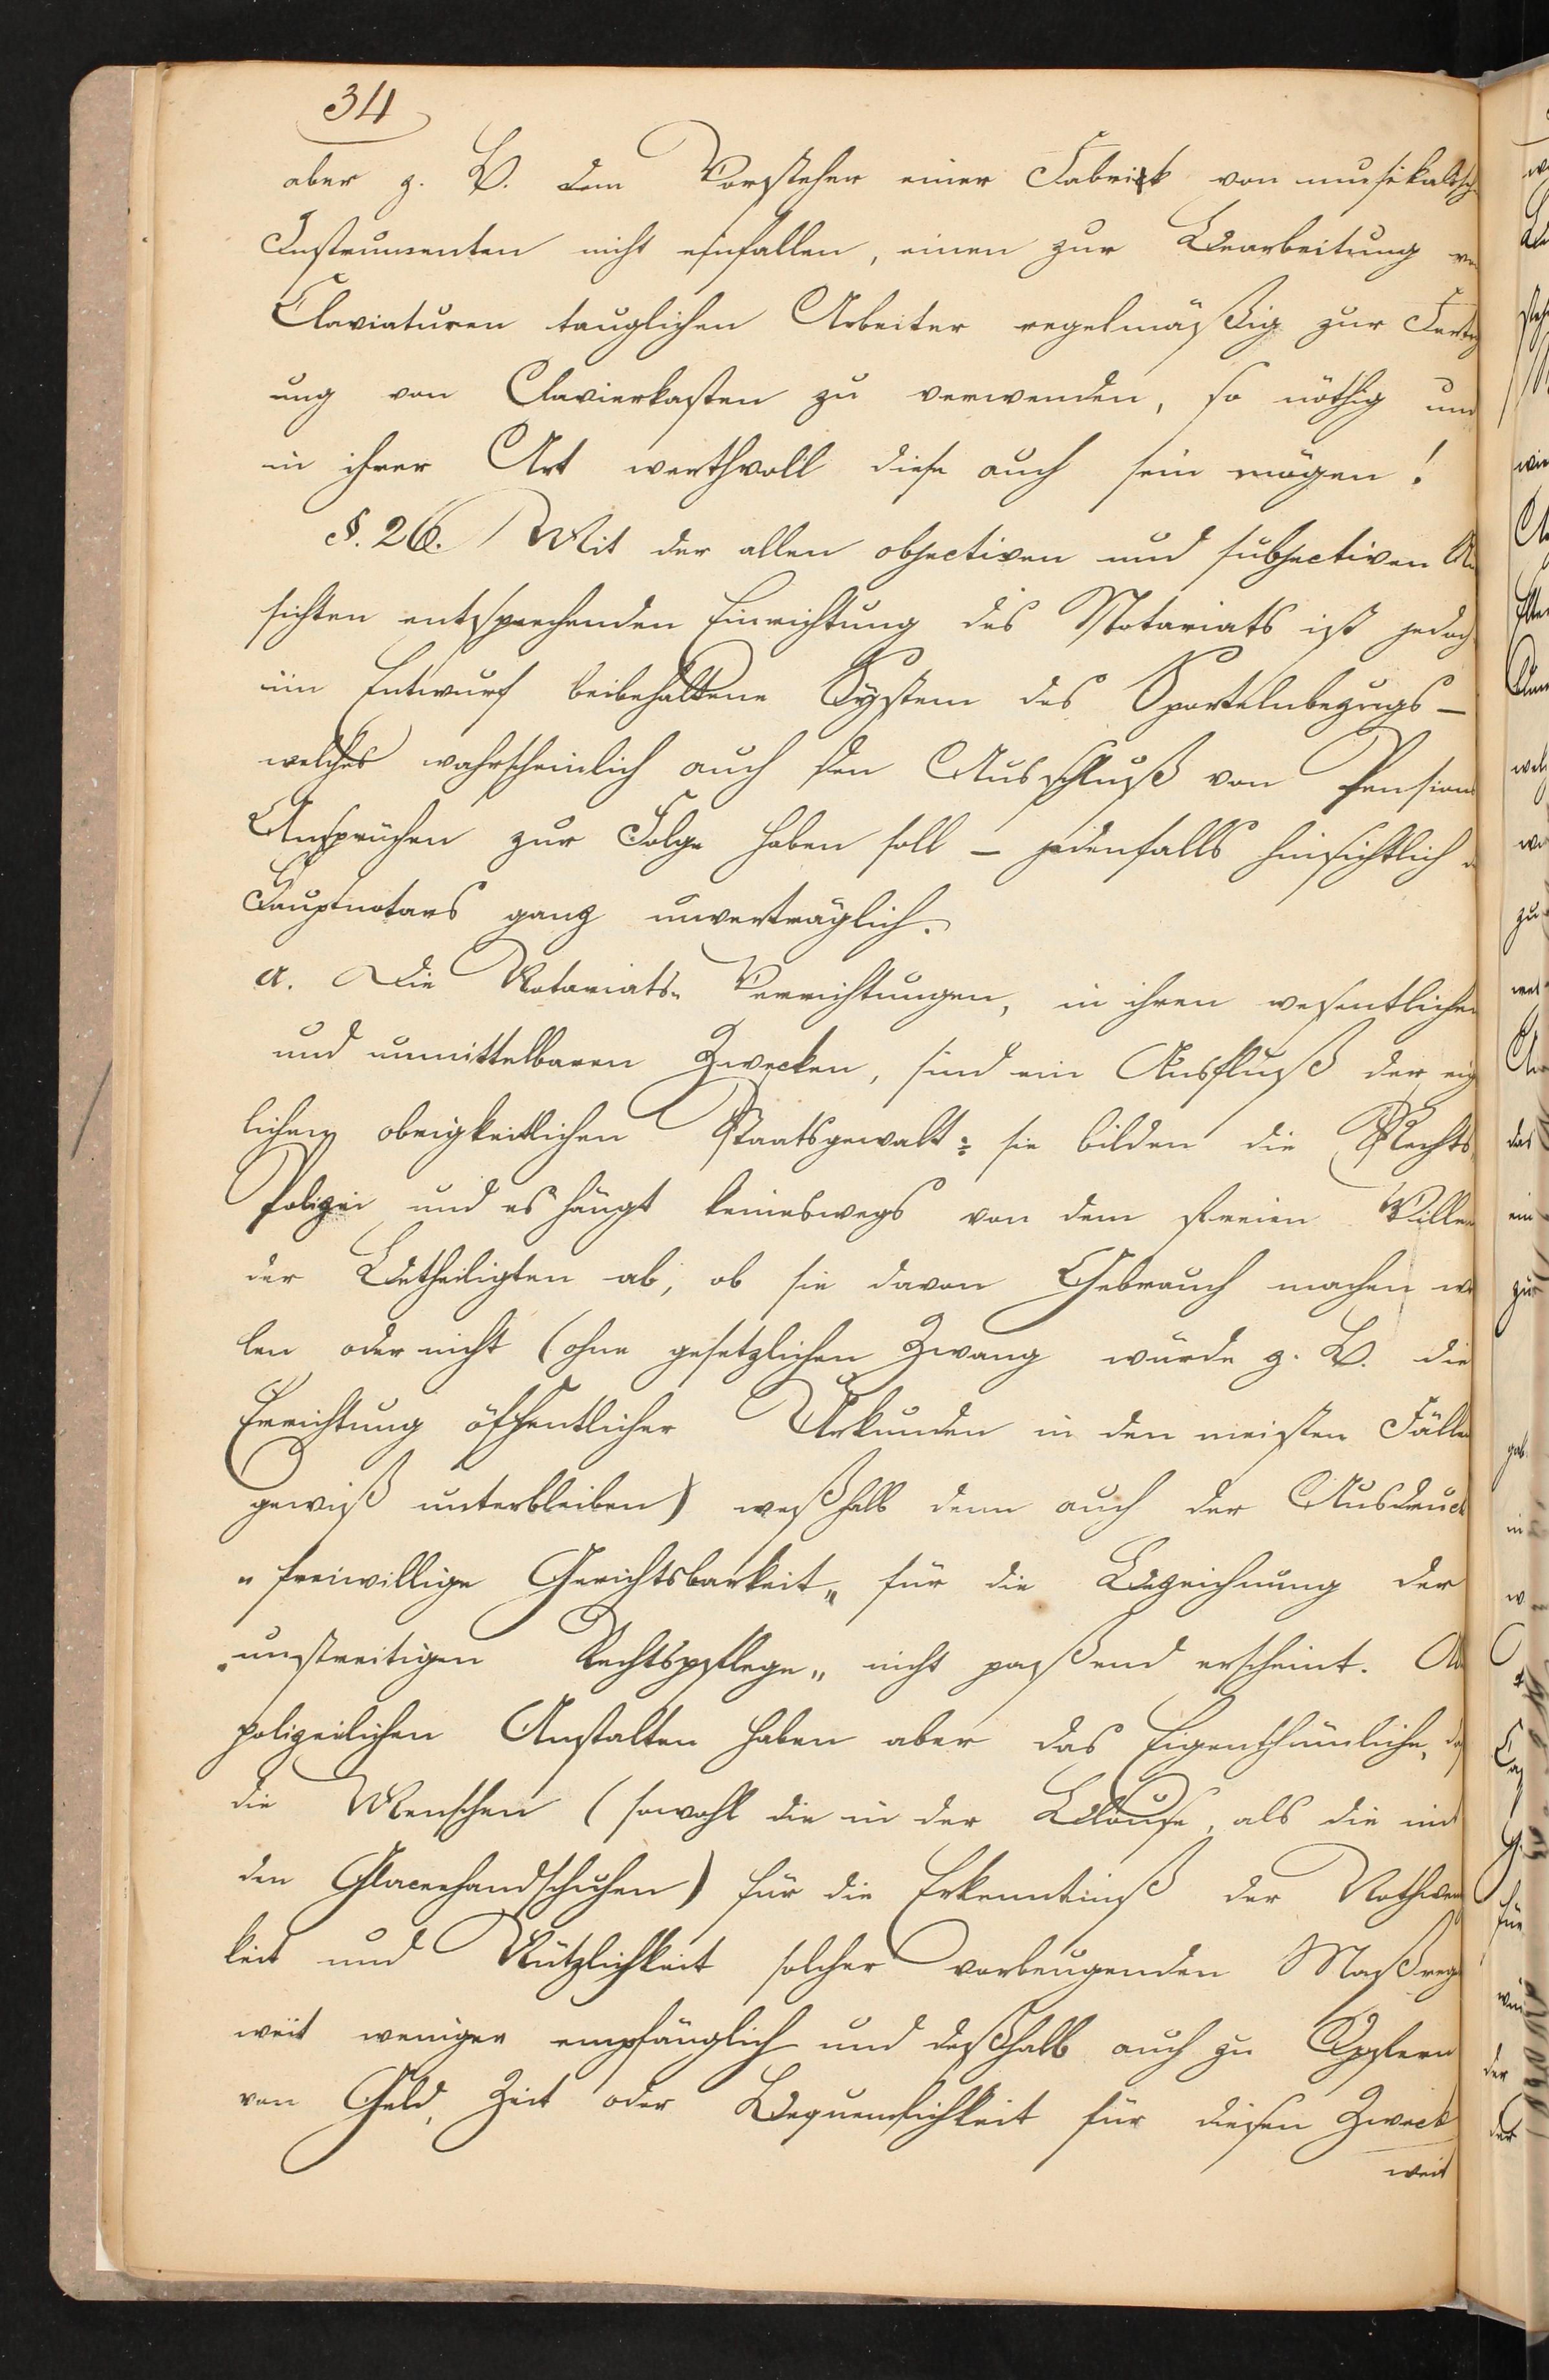 34
aber z. B. dem Vorsteher einer Fabrik von musikalisch
Instrumenten nicht einfallen, einen zur Bearbeitung von
Claviaturen tauglichen Arbeiter regelmäßig zur Fertig
ung von Clavierkasten zu verwenden, so nöthig und
in ihrer Art werthvoll diese auch sein mögen!
§. 26. Mit der allen objectiven und subjectiven An
sichten entsprechenden Einrichtung des Notariats ist jedoch
im Entwurf beibehaltene System des Sportelnbezugs –
welches wahrscheinlich auch den Ausschluß von Pensions
Ansprüchen zur Folge haben soll – jedenfalls hinsichtlich d
Hauptnotars ganz unverträglich.
a. Die Notariats- Verrichtungen, in ihren wesentlichen
und unmittelbaren Zwecken, sind ein Ausfluß der eig
lichen obrigkeitlichen Staatsgewalt: sie bilden die Rechts-
Polizei und es hängt keineswegs von dem freien Willen
der Betheiligten ab, ob sie davon Gebrauch machen wo
len oder nicht (ohne gesetzlichen Zwang würde z. B. die
Errichtung öffentlicher Urkunden in den meisten Fällen
gewiß unterbleiben) weßhalb denn auch der Ausdruck
"freiwillige Gerichtsbarkeit" für die Bezeichnung der
"unstreitigen Rechtspflege" nicht paßend erscheint. Al
polizeilichen Anstalten haben aber das Eigenthümliche, daß
die Menschen (sowohl die in der Blouse, als die mit
den Glaceehandschuhen) für die Erkenntniß der Nothwend
keit und Nützlichkeit solcher vorbeugenden Maßreg
weit weniger empfänglich und deßhalb auch zu Opfern
von Geld, Zeit oder Bequemlichkeit für diesen Zweck
weit